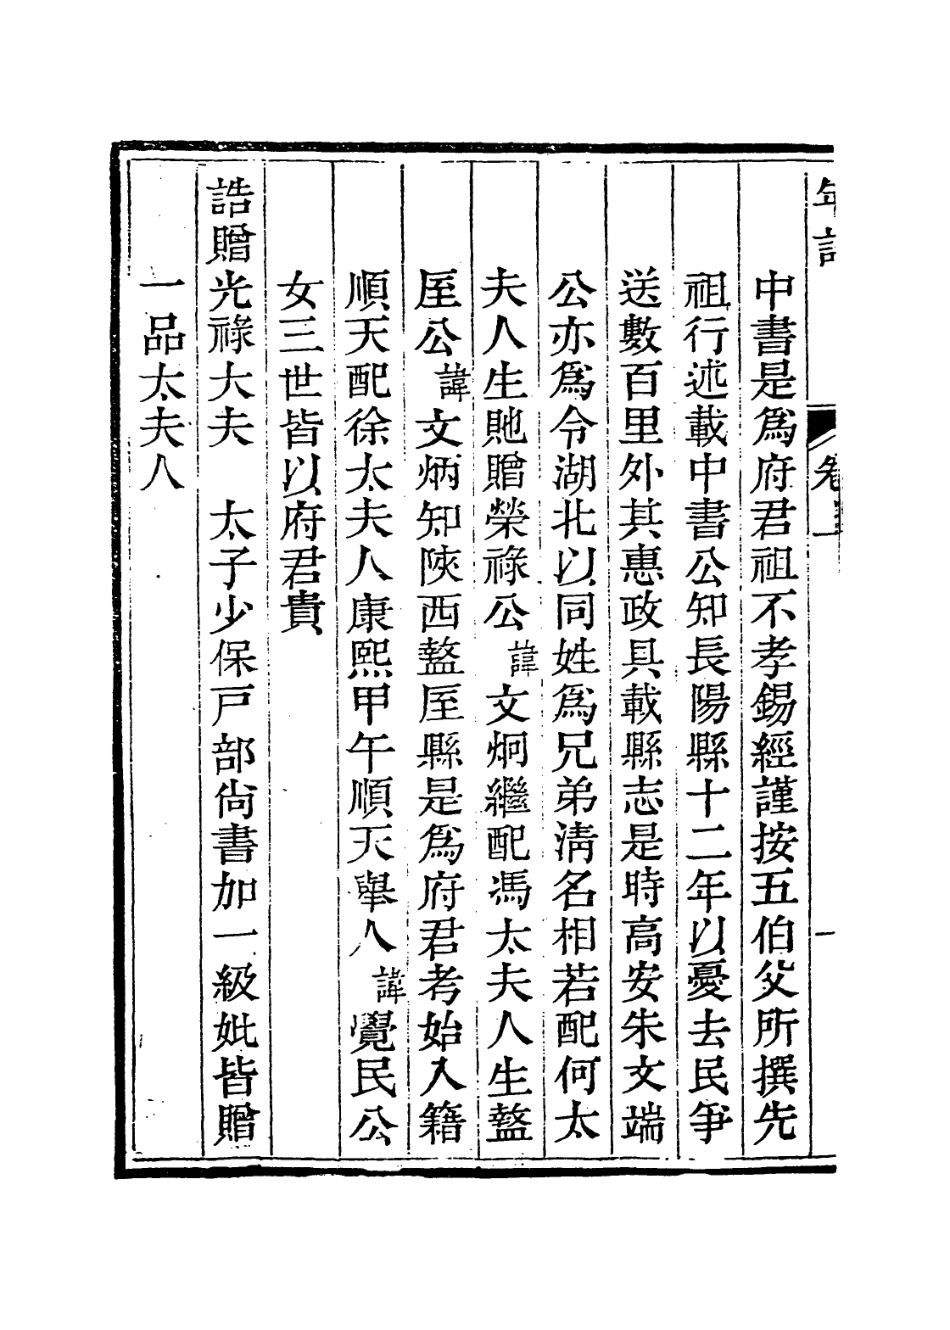 年譜 卷一 一
中書是爲府君祖不孝錫經謹按五伯父所撰先
祖行述載中書公知長陽縣十二年以憂去民爭
送數百里外其惠政具載縣志是時高安朱文端
公亦爲令湖北以同姓爲兄弟淸名相若配何太
夫人生貤贈榮祿公諱文炯繼配馮太夫人生盩
厔公諱文炳知陝西盩厔縣是爲府君考始入籍
順天配徐太夫人康熙甲午順天舉人諱覺民公
女三世皆以府君貴
誥贈光祿大夫 太子少保戸部尙書加一級妣皆贈
一品太夫人